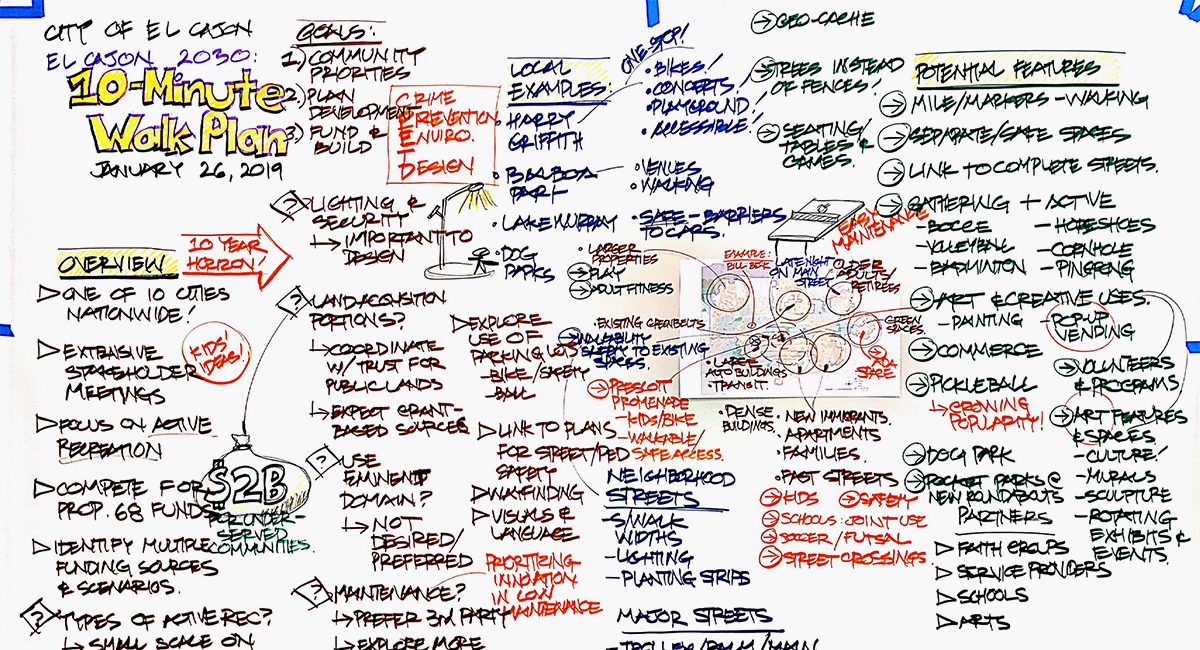 CITY OF EL CAJON
EL CAJON 2030:
10-Minute
Walk Plan
JANUARY 26, 2019
GOALS:
1.) COMMUNITY
PRIORITIES
2.) PLAN
DEVELOPMENT
3.) FUND &
BUILD
CRIME
PREVENTION
ENVIRO.
DESIGN
LOCAL
EXAMPLES:
• HARRY
GRIFFITH
• BALBOA
PARK
• LAKE MURRAY
• DOG
PARKS
ONE-STOP!
• BIKES!
• CONCERTS!
• PLAYGROUND!
• ACCESSIBLE!
• VENUES
• WALKING
• SAFE - BARRIERS
TO CARS.
→ GEO-CACHE
→ TREES INSTEAD
OF FENCES!
→ SEATING/
TABLES &
GAMES.
EASY
MAINTENANCE
POTENTIAL FEATURES
→ MILE/MARKERS - WALKING
→ SEPARATE/SAFE SPACES
→ LINK TO COMPLETE STREETS.
→ GATHERING + ACTIVE
- BOCCE
- VOLLEYBALL
- BADMINTON
- HORSESHOES
- CORNHOLE
- PINGPONG
→ ART & CREATIVE USES.
- PAINTING
- POP-UP
VENDING
→ COMMERCE
→ PICKLEBALL
↳ GROWING
POPULARITY!
→ DOG PARK
→ POCKET PARKS @
NEW ROUNDABOUTS
→ VOLUNTEERS
& PROGRAMS
→ ART FEATURES
& SPACES
- CULTURE!
- MURALS
- SCULPTURE
- ROTATING
EXHIBITS &
EVENTS.
PARTNERS
▷ FAITH GROUPS
▷ SERVICE PROVIDERS
▷ SCHOOLS
▷ ARTS
OVERVIEW
10 YEAR
HORIZON!
▷ ONE OF 10 CITIES
NATIONWIDE!
▷ EXTENSIVE
STAKEHOLDER
MEETINGS
KIDS'
IDEAS!
▷ FOCUS ON ACTIVE
RECREATION
▷ COMPETE FOR
PROP. 68 FUNDS
$2B
FOR UNDER-
SERVED
COMMUNITIES.
▷ IDENTIFY MULTIPLE
FUNDING SOURCES
& SCENARIOS.
? TYPES OF ACTIVE REC?
↳ SMALL SCALE ON
? LIGHTING &
SECURITY
↳ IMPORTANT TO
DESIGN
? LAND ACQUISITION
PORTIONS?
↳ COORDINATE
W/ TRUST FOR
PUBLIC LANDS
↳ EXPECT GRANT-
BASED SOURCES
? USE
EMINENT
DOMAIN?
↳ NOT
DESIRED/
PREFERRED
? MAINTENANCE?
↳ PREFER 3RD PARTY
↳ EXPLORE MORE
PRIORITIZING
INNOVATION
IN LOW
MAINTENANCE
▷ EXPLORE
USE OF
PARKING LOTS
- BIKE/SAFETY
- BALL
▷ LINK TO PLANS
FOR STREET/PED
SAFETY
▷ WAYFINDING
▷ VISUALS &
LANGUAGE
• LARGER
PROPERTIES
→ PLAY
→ ADULT FITNESS
• EXISTING GREENBELTS
→ WALKABILITY
SAFETY TO EXISTING
SPACES.
→ PRESCOTT
PROMENADE
- KIDS/BIKE
- WALKABLE/
SAFE ACCESS.
EXAMPLE:
BILL BECK
LATE NIGHT
ON MAIN
STREET
OLDER
ADULTS/
RETIREES
GREEN
SPACES.
→ DOG
SPACE
• LARGE
AUTO BUILDINGS
• TRANSIT.
• DENSE
BUILDINGS.
• NEW IMMIGRANTS.
• APARTMENTS
• FAMILIES.
• FAST STREETS
→ KIDS
→ SAFETY
→ SCHOOLS: JOINT USE
→ SOCCER / FUTSAL
→ STREET CROSSINGS
NEIGHBORHOOD
STREETS
- S/WALK
WIDTHS
- LIGHTING
- PLANTING STRIPS
MAJOR STREETS